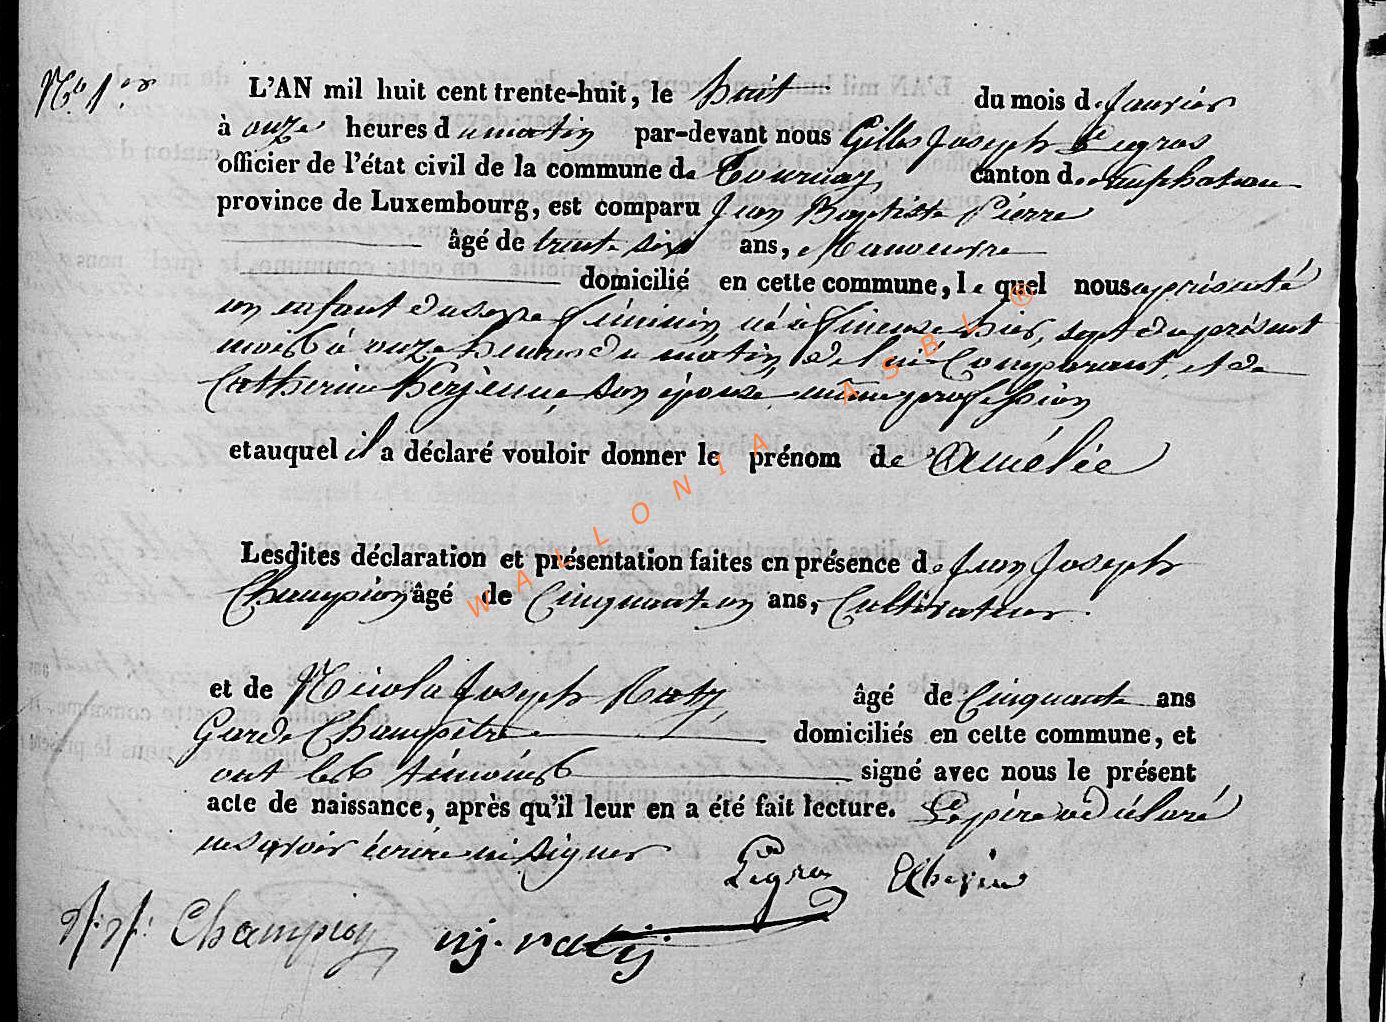 No. 1er
L'AN mil huit cent trente-huit, le huit du mois de Janvier
à onze heures du matin par-devant nous Gilles Joseph Legros
officier de l'état civil de la commune de Tournay, canton de neufchateau
province de Luxembourg, est comparu Jean Baptiste Pierre
âgé de trente six ans, Manoeuvre
domicilié en cette commune, le quel nous a présenté
un enfant du sexe féminin, né à hier, sept du présent
mois à onze heures du matin, de lui Comparant, et de
Catherine son épouse, même profession
et auquel il a déclaré vouloir donner le prénom de Amélie
Lesdites déclaration et présentation faites en présence de Jean Joseph
Champion âgé de Cinquante un ans, Cultivateur
et de Nicolas Joseph Raty âgé de Cinquante ans
Garde Champêtre domiciliés en cette commune, et
ont les témoins signé avec nous le présent
acte de naissance, après qu'il leur en a été fait lecture. Le père a déclaré
ne savoir écrire ni signer
Legros
j: j: Champion n.j. raty
WALLONIA ASBL ®